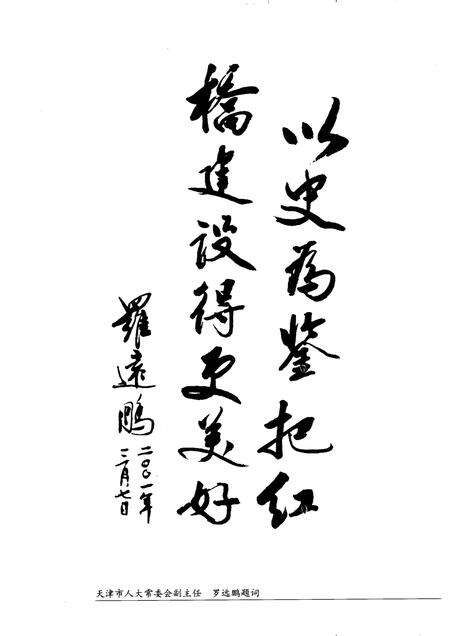 以史为鉴把红
橋建设得更美好
羅遠鵬
二〇〇一年
二月七日
天津市人大常委会副主任 罗远鹏题词